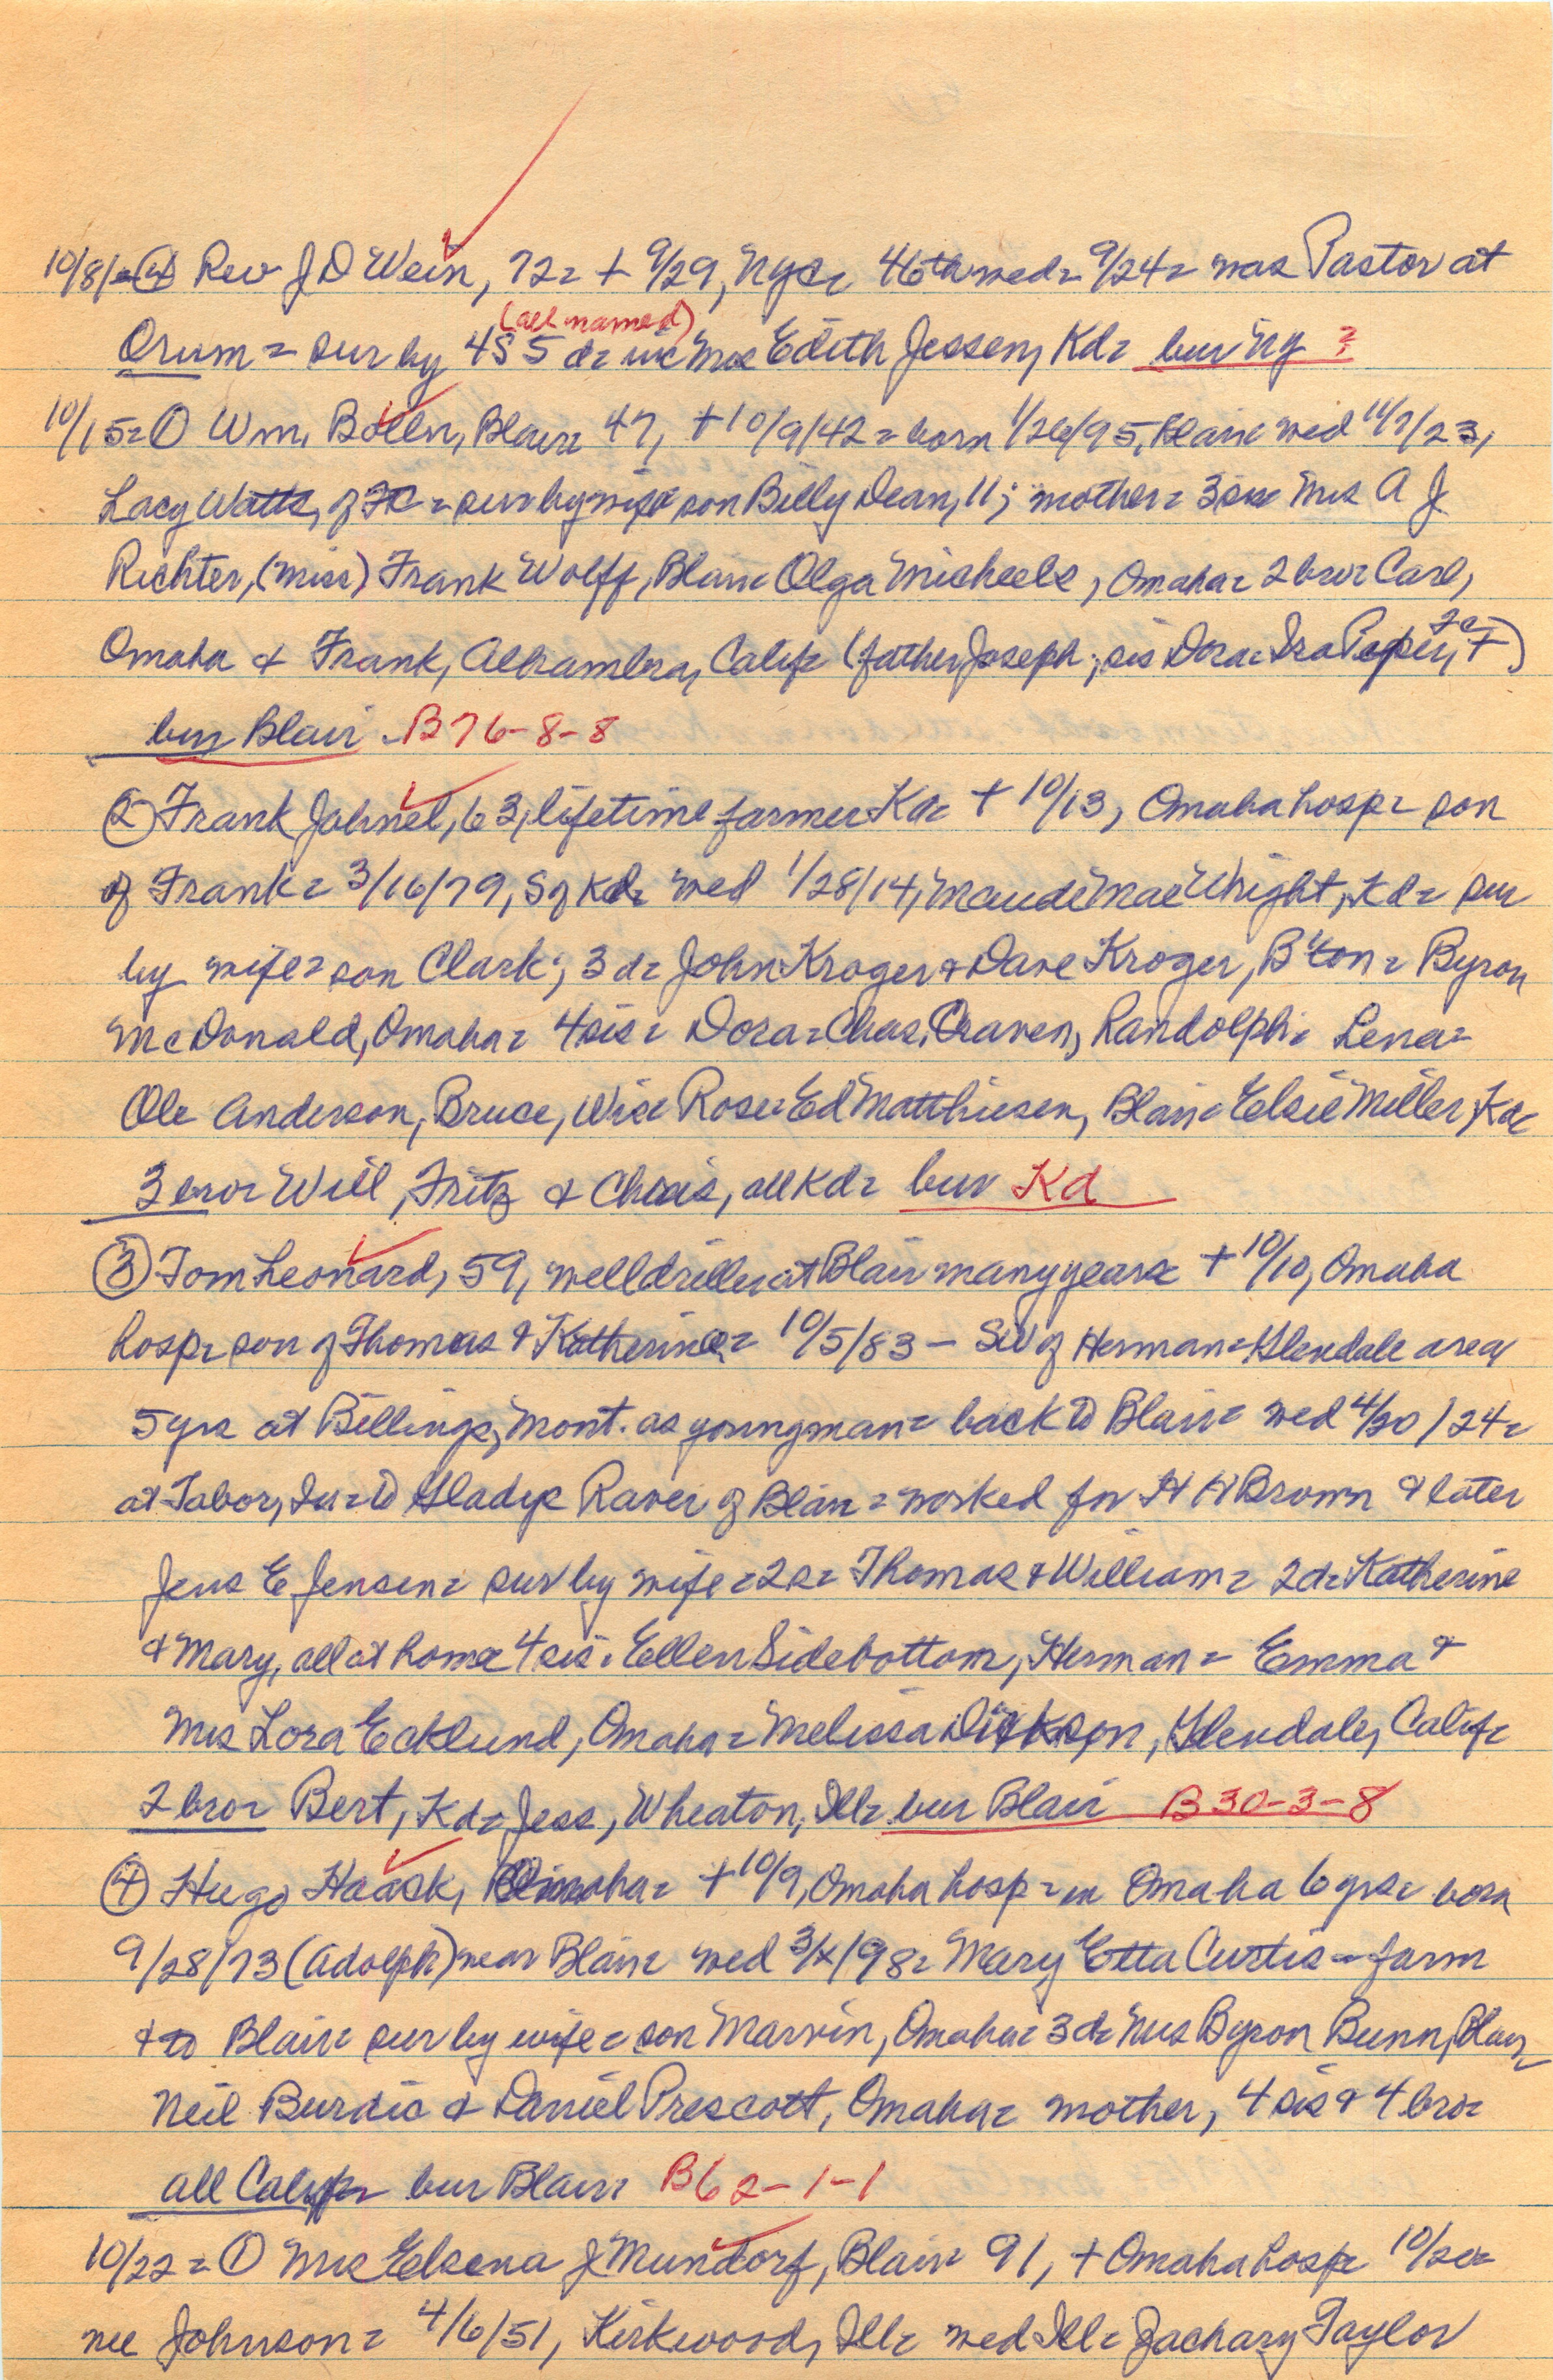 10/8/= ④ Rev J D Wein, 72= + 9/29, Nyc= 46th wed= 9/24= was Pastor at
(all named)
Orum = sur by 4S 5 d= inc Mrs Edith Jessen, Kd= bur Ny ?
10/15= ① Wm. Bolln, Blair= 47, + 10/9/42 = born 1/26/95, Blair= wed 11/7/23,
Lacy Watts, of FC = sur by wife son Billy Dean, 11; mother= 3 sis= Mrs A J
Richter, (Miss) Frank Wolff, Blair= Olga Micheels, Omaha= 2 bro= Carl,
Omaha & Frank, Alhambra, Calif= (father Joseph; sis Dora= Ira Pieper, FC +)
bur Blair - B76-8-8
② Frank Jahnel, 63, lifetime farmer Kd= + 10/13, Omaha hosp= son
of Frank= 3/16/79, S of Kd= wed 1/28/14, Maude Mae Wright, Kd= sur
by wife= son Clark; 3 d= John Kroger & Dave Kroger, B'ton= Byron
McDonald, Omaha= 4 sis= Dora= Chas. Craven, Randolph= Lena=
Ole Anderson, Bruce, Wis= Rose= Ed Matthiesen, Blair= Elsie Miller, Kd=
3 bro= Will, Fritz & Chris, all Kd= bur Kd
③ Tom Leonard, 59, well driller at Blair many years= + 10/10, Omaha
hosp= son of Thomas & Katherine= 10/5/83 - SW of Herman= Glendale area
5 yrs at Billings, Mont. as young man= back to Blair= wed 4/20/24=
at Tabor, Ia= to Gladys Raver of Blair= worked for H H Brown & later
Jens E Jensen= sur by wife= 2 s= Thomas & William= 2 d= Katherine
& Mary, all at home= 4 sis= Ellen Sidebottom, Herman= Emma &
Mrs Lora Ecklund, Omaha= Melissa Dickson, Glendale, Calif=
2 bro= Bert, Kd= Jess, Wheaton, Ill= bur Blair B30-3-8
④ Hugo Haack, Omaha= + 10/9, Omaha hosp= in Omaha 6 yrs= born
9/28/73 (Adolph) near Blair= wed 3/x/98= Mary Etta Curtis= farm
& to Blair= sur by wife= son Marvin, Omaha= 3 d= Mrs Byron Bunn, Blair,
Neil Burdic & Daniel Prescott, Omaha= mother, 4 sis & 4 bro=
all Calif= bur Blair= B62-1-1
10/22= ① Mrs Elsena J Mundorf, Blair= 91, + Omaha hosp= 10/20=
nee Johnson= 4/6/51, Kirkwood, Ill= wed Ill= Zachary Taylor